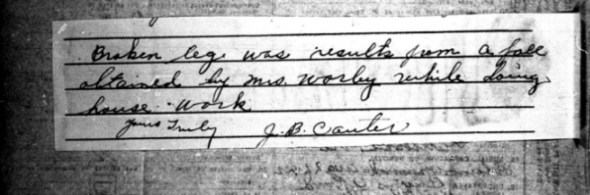 Broken leg was results from a fall
obtained by Mrs. Worley while doing
house-work
yours Truly J. B. Cauler